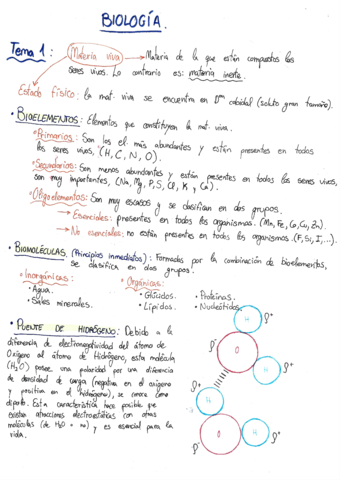 BIOLOGÍA.
Tema 1: Materia viva → Materia de la que están compuestos los
seres vivos. Lo contrario es: materia inerte.
Estado físico: la mat. viva se encuentra en Dºⁿ coloidal (soluto gran tamaño).
• BIOELEMENTOS: Elementos que constituyen la mat. viva.
→ Primarios: Son los el. más abundantes y están presentes en todos
los seres vivos, (H, C, N, O).
→ Secundarios: Son menos abundantes y están presentes en todos los seres vivos,
son muy importantes, (Na, Mg, P, S, Cl, K y Ca).
→ Oligoelementos: Son muy escasos y se clasifican en dos grupos.
→ Esenciales: presentes en todos los organismos. (Mn, Fe, Co, Cu, Zn).
→ No esenciales: no están presentes en todos los organismos. (F, Si, I, ...).
• BIOMOLÉCULAS (Principios inmediatos): Formadas por la combinación de bioelementos,
se clasifica en dos grupos.
• Inorgánicas:
• Agua.
• Sales minerales.
• Orgánicas:
• Glúcidos.
• Lípidos.
• Proteínas.
• Nucleótidos.
• PUENTE DE HIDRÓGENO: Debido a la
diferencia de electronegatividad del átomo de
Oxígeno al átomo de Hidrógeno, esta molécula
(H₂O) posee una polaridad por una diferencia
de densidad de carga (negativa en el oxígeno
y positiva en el hidrógeno), se conoce como
dipolo. Esta característica hace posible que
existan atracciones electroestáticas con otras
moléculas (de H₂O o no) y es esencial para la
vida.
H
O
H
H
O
H